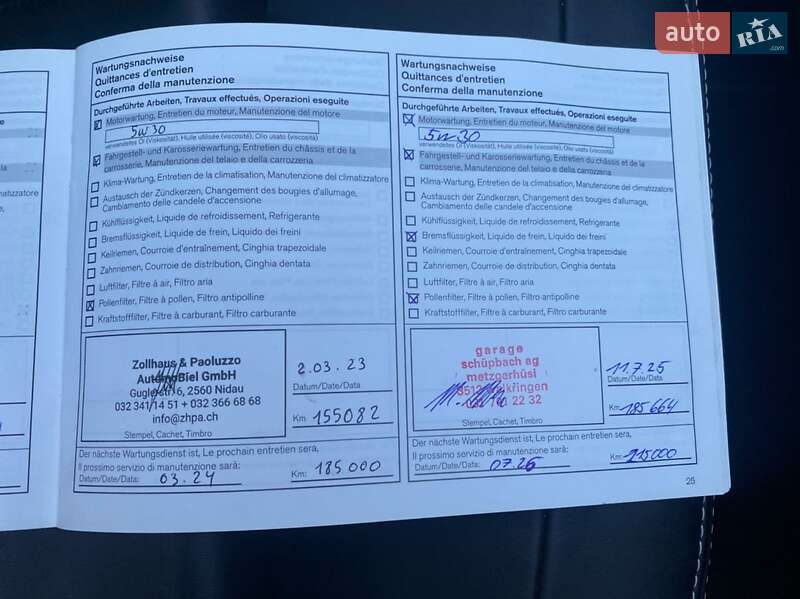 auto RIA .com
Wartungsnachweise
Quittances d'entretien
Conferma della manutenzione
Durchgeführte Arbeiten, Travaux effectués, Operazioni eseguite
Motorwartung, Entretien du moteur, Manutenzione del motore
5W30
verwendetes Öl (Viskosität), Huile utilisée (viscosité), Olio usato (viscosità)
Fahrgestell- und Karosseriewartung, Entretien du châssis et de la
carrosserie, Manutenzione del telaio e della carrozzeria
Klima-Wartung, Entretien de la climatisation, Manutenzione del climatizzatore
Austausch der Zündkerzen, Changement des bougies d'allumage,
Cambiamento delle candele d'accensione
Kühlflüssigkeit, Liquide de refroidissement, Refrigerante
Bremsflüssigkeit, Liquide de frein, Liquido dei freini
Keilriemen, Courroie d'entraînement, Cinghia trapezoidale
Zahnriemen, Courroie de distribution, Cinghia dentata
Luftfilter, Filtre à air, Filtro aria
Pollenfilter, Filtre à pollen, Filtro antipolline
Kraftstofffilter, Filtre à carburant, Filtro carburante
Zollhaus & Paoluzzo
AutomoBiel GmbH
Guglerstr. 6, 2560 Nidau
032 341 14 51 + 032 366 68 68
info@zhpa.ch
Stempel, Cachet, Timbro
2.03.23
Datum/Date/Data
Km 155082
Der nächste Wartungsdienst ist, Le prochain entretien sera,
Il prossimo servizio di manutenzione sarà:
Datum/Date/Data: 03.24
Km: 185000
Wartungsnachweise
Quittances d'entretien
Conferma della manutenzione
Durchgeführte Arbeiten, Travaux effectués, Operazioni eseguite
Motorwartung, Entretien du moteur, Manutenzione del motore
5W30
verwendetes Öl (Viskosität), Huile utilisée (viscosité), Olio usato (viscosità)
Fahrgestell- und Karosseriewartung, Entretien du châssis et de la
carrosserie, Manutenzione del telaio e della carrozzeria
Klima-Wartung, Entretien de la climatisation, Manutenzione del climatizzatore
Austausch der Zündkerzen, Changement des bougies d'allumage,
Cambiamento delle candele d'accensione
Kühlflüssigkeit, Liquide de refroidissement, Refrigerante
Bremsflüssigkeit, Liquide de frein, Liquido dei freini
Keilriemen, Courroie d'entraînement, Cinghia trapezoidale
Zahnriemen, Courroie de distribution, Cinghia dentata
Luftfilter, Filtre à air, Filtro aria
Pollenfilter, Filtre à pollen, Filtro antipolline
Kraftstofffilter, Filtre à carburant, Filtro carburante
garage
schüpbach ag
metzgerhüsi
22 32
Stempel, Cachet, Timbro
11.7.25
Datum/Date/Data
Km 185664
Der nächste Wartungsdienst ist, Le prochain entretien sera,
Il prossimo servizio di manutenzione sarà:
Datum/Date/Data: 07.26
Km: 215000
25